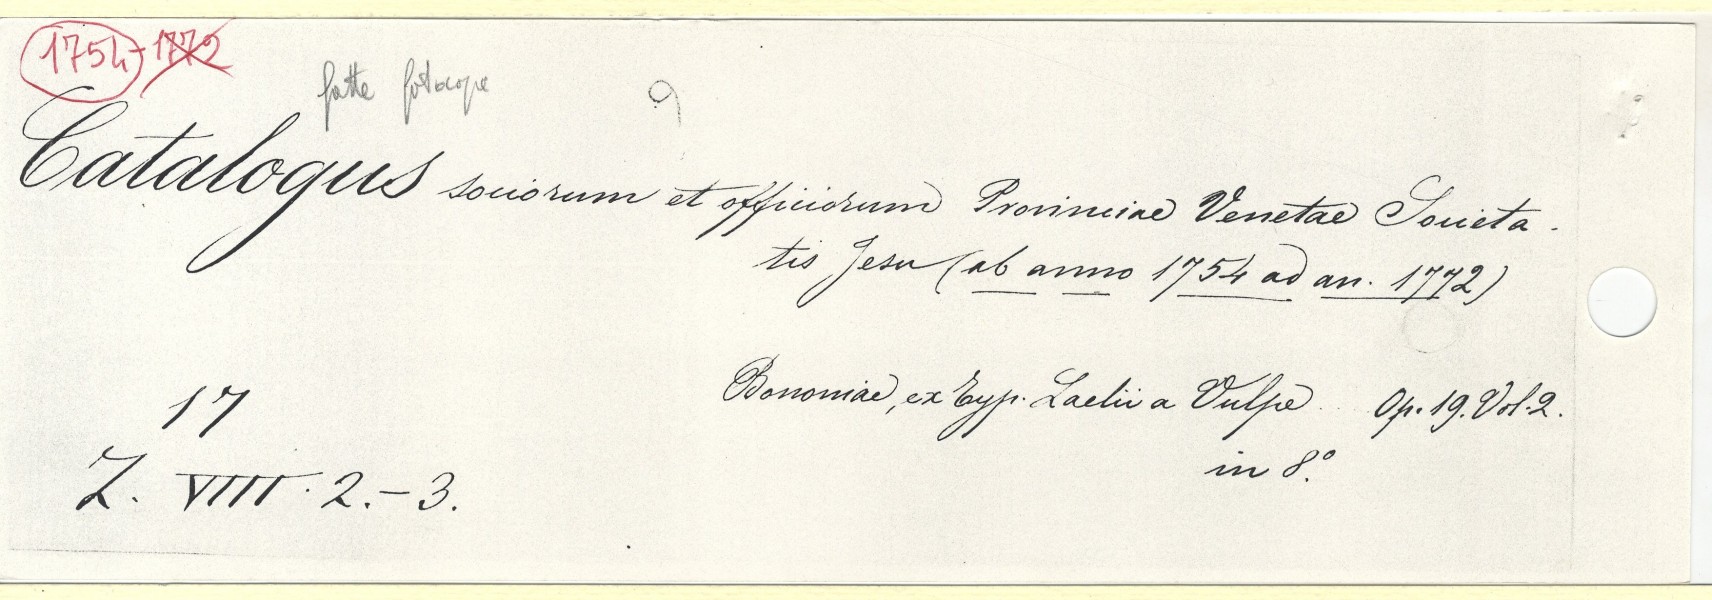 1754-1772
fatte fotocopie
Catalogus sociorum et officiorum Provinciae Venetae Societa-
tis Jesu (ab anno 1754 ad an. 1772)
Bononiae, ex typ. Laelii a Vulpe. Op. 19. Vol. 2.
in 8.°
17
Z. VIII. 2.-3.